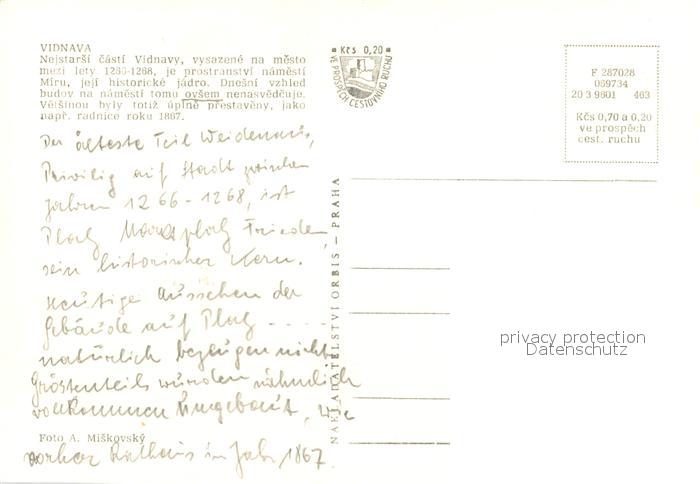 VIDNAVA
Nejstarší částí Vidnavy, vysazené na město
mezi lety 1266-1268, je prostranství náměstí
Míru, její historické jádro. Dnešní vzhled
budov na náměstí tomu ovšem nenasvědčuje.
Většinou byly totiž úplně přestavěny, jako
např. radnice roku 1867.
Der älteste Teil Weidenaus,
Privilig auf Stadt zwischen
Jahren 1266-1268, ist
Platz Marktplatz Frieden,
sein historischer Kern.
Heutige Aussehen der
Gebäude auf Platz ----
natürlich bezeugen nicht
Gröstenteils wurden nähmlich
vollkommen Umgebaut, wie
Foto A. Miškovský
vorher Rathaus im Jahr 1867.
Kčs 0,20
VE PROSPĚCH CESTOVNÍHO RUCHU
NAKLADATELSTVÍ ORBIS – PRAHA
F 287028
069734
20 3 9601 463
Kčs 0,70 a 0,20
ve prospěch
cest. ruchu
privacy protection
Datenschutz